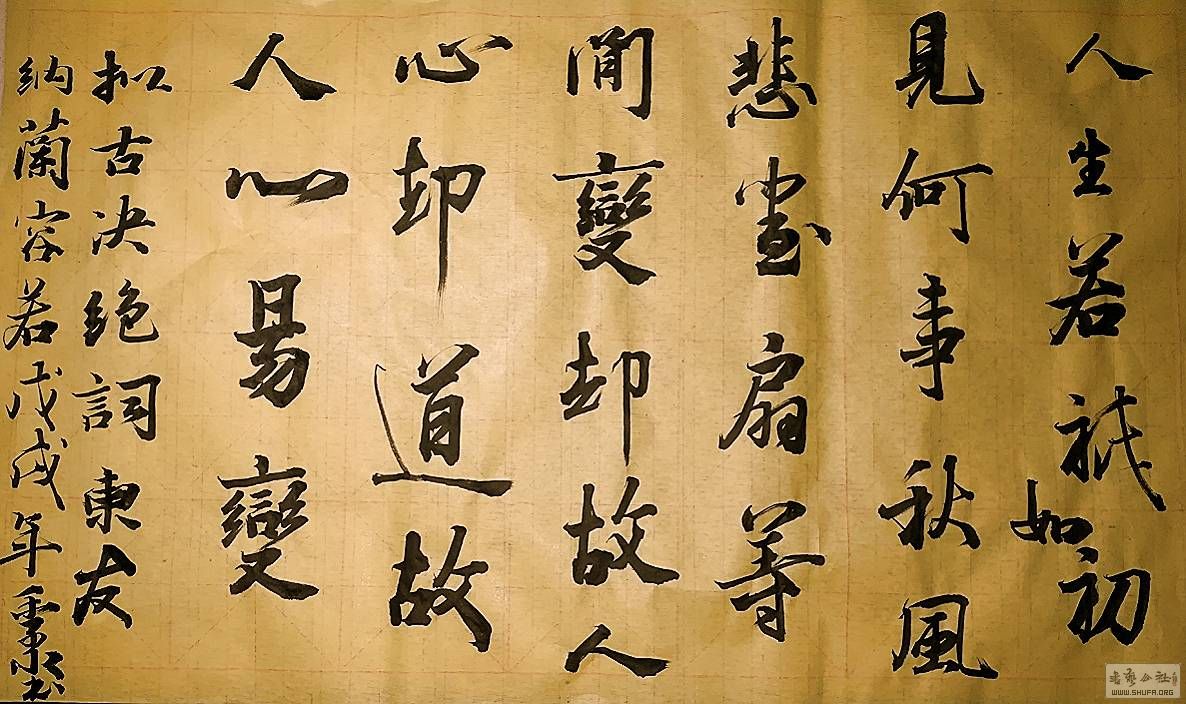 人生若祇如初
見何事秋風
悲畫扇等
閒變却故人
心却道故
人心易變
拟古决絕詞柬友
納蘭容若戊戌年书
書藝公社
WWW.SHUFA.ORG